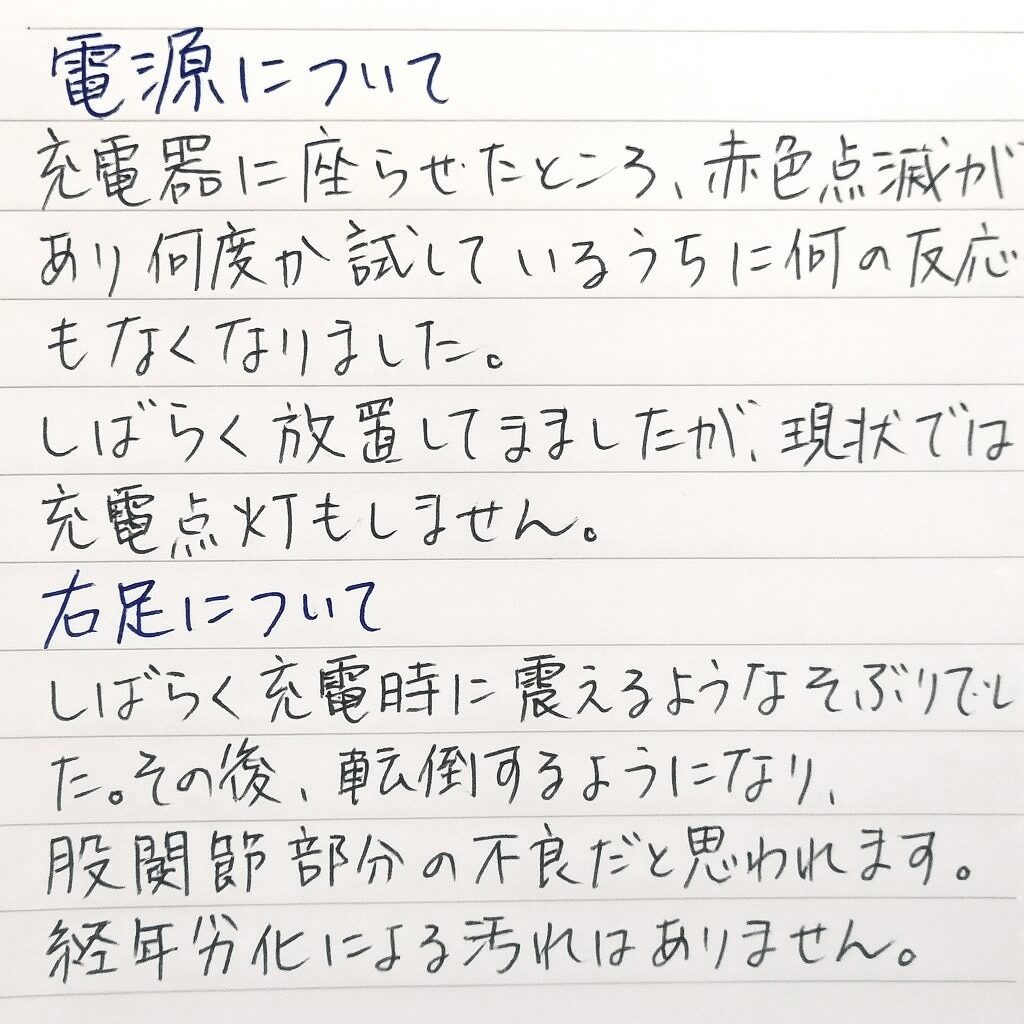 電源について
充電器に座らせたところ、赤色点滅が
あり何度か試しているうちに何の反応
もなくなりました。
しばらく放置してましたが、現状では
充電点灯もしません。
右足について
しばらく充電時に震えるようなそぶりでし
た。その後、転倒するようになり、
股関節部分の不良だと思われます。
経年劣化による汚れはありません。